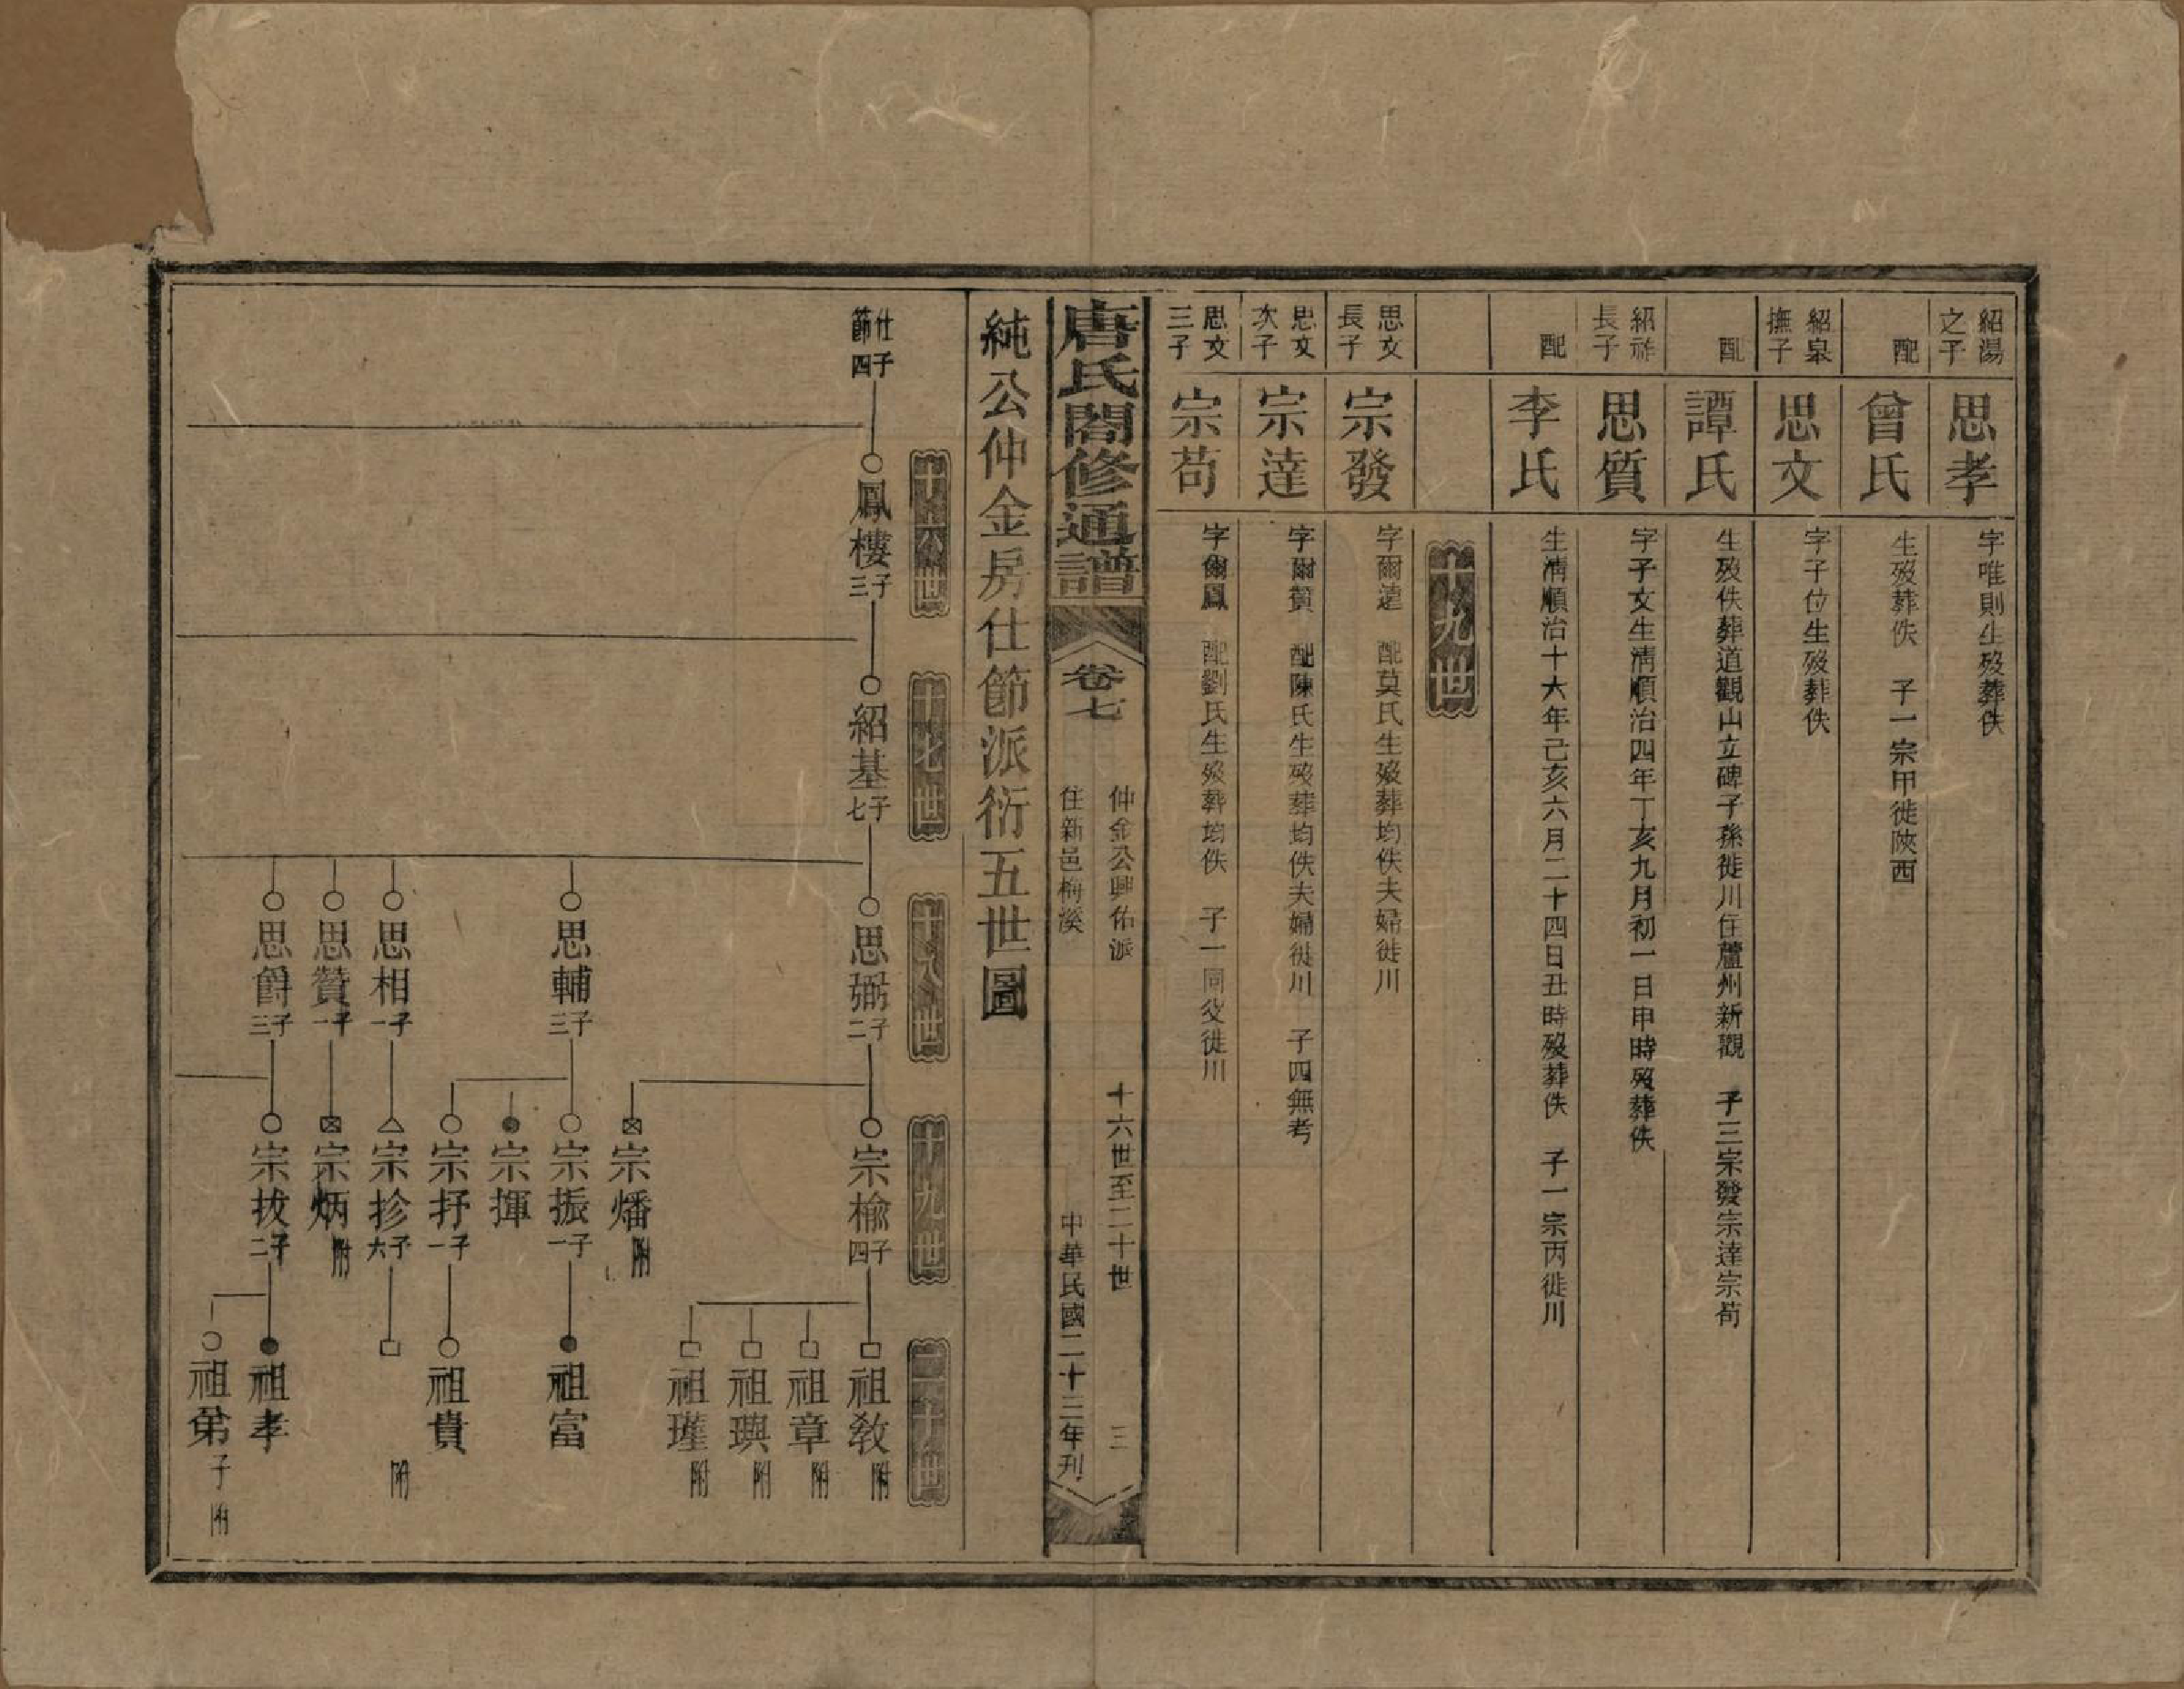 紹湯之子
思孝
字唯則生歿葬佚
配
曾氏
生歿葬佚　子一宗甲徙陝西
紹泉撫子
思文
字子位生歿葬佚
配
譚氏
生歿佚葬道觀山立碑子孫徙川住蘆州新觀　子三宗發宗達宗苟
紹祚長子
思質
字子文生淸順治四年丁亥九月初一日申時歿葬佚
配
李氏
生淸順治十六年己亥六月二十四日丑時歿葬佚　子一宗丙徙川
十九世
思文長子
宗發
字爾遠　配莫氏生歿葬均佚夫婦徙川
思文次子
宗達
字爾贊　配陳氏生歿葬均佚夫婦徙川　子四無考
思文三子
宗苟
字爾鳳　配劉氏生歿葬均佚　子一同父徙川
唐氏閤修通譜
卷七
仲金公興佑派
住新邑梅溪
十六世至二十世
三
中華民國二十三年刊
純公仲金房仕節派衍五世圖
十六世
十七世
十八世
十九世
二十世
仕節四子
鳳樓三子
紹基七子
思弼二子
宗楡四子
祖敎附
祖章附
祖璵附
祖瑾附
宗燔附
思輔三子
宗振一子
祖富
宗揮
宗抒一子
祖貴
思相一子
宗抮六子
附
思贊一子
宗炳附
思爵三子
宗拔二子
祖孝
祖弟子附